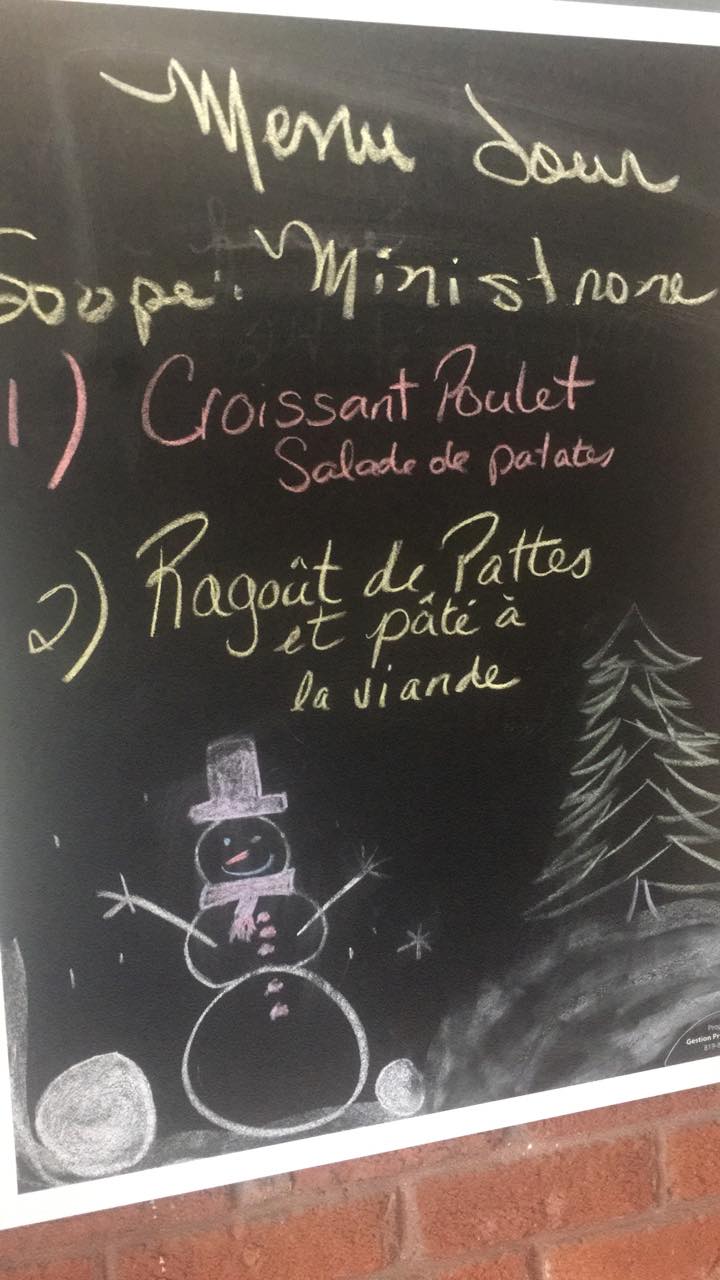 Menu Jour
Soupe: Ministrone
1) Croissant Poulet
Salade de patates
2) Ragoût de Pattes
et pâté à
la viande
Gestion Pr